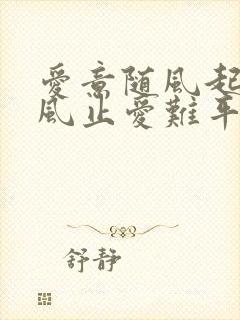 愛意随風起
風止愛難平
舒靜